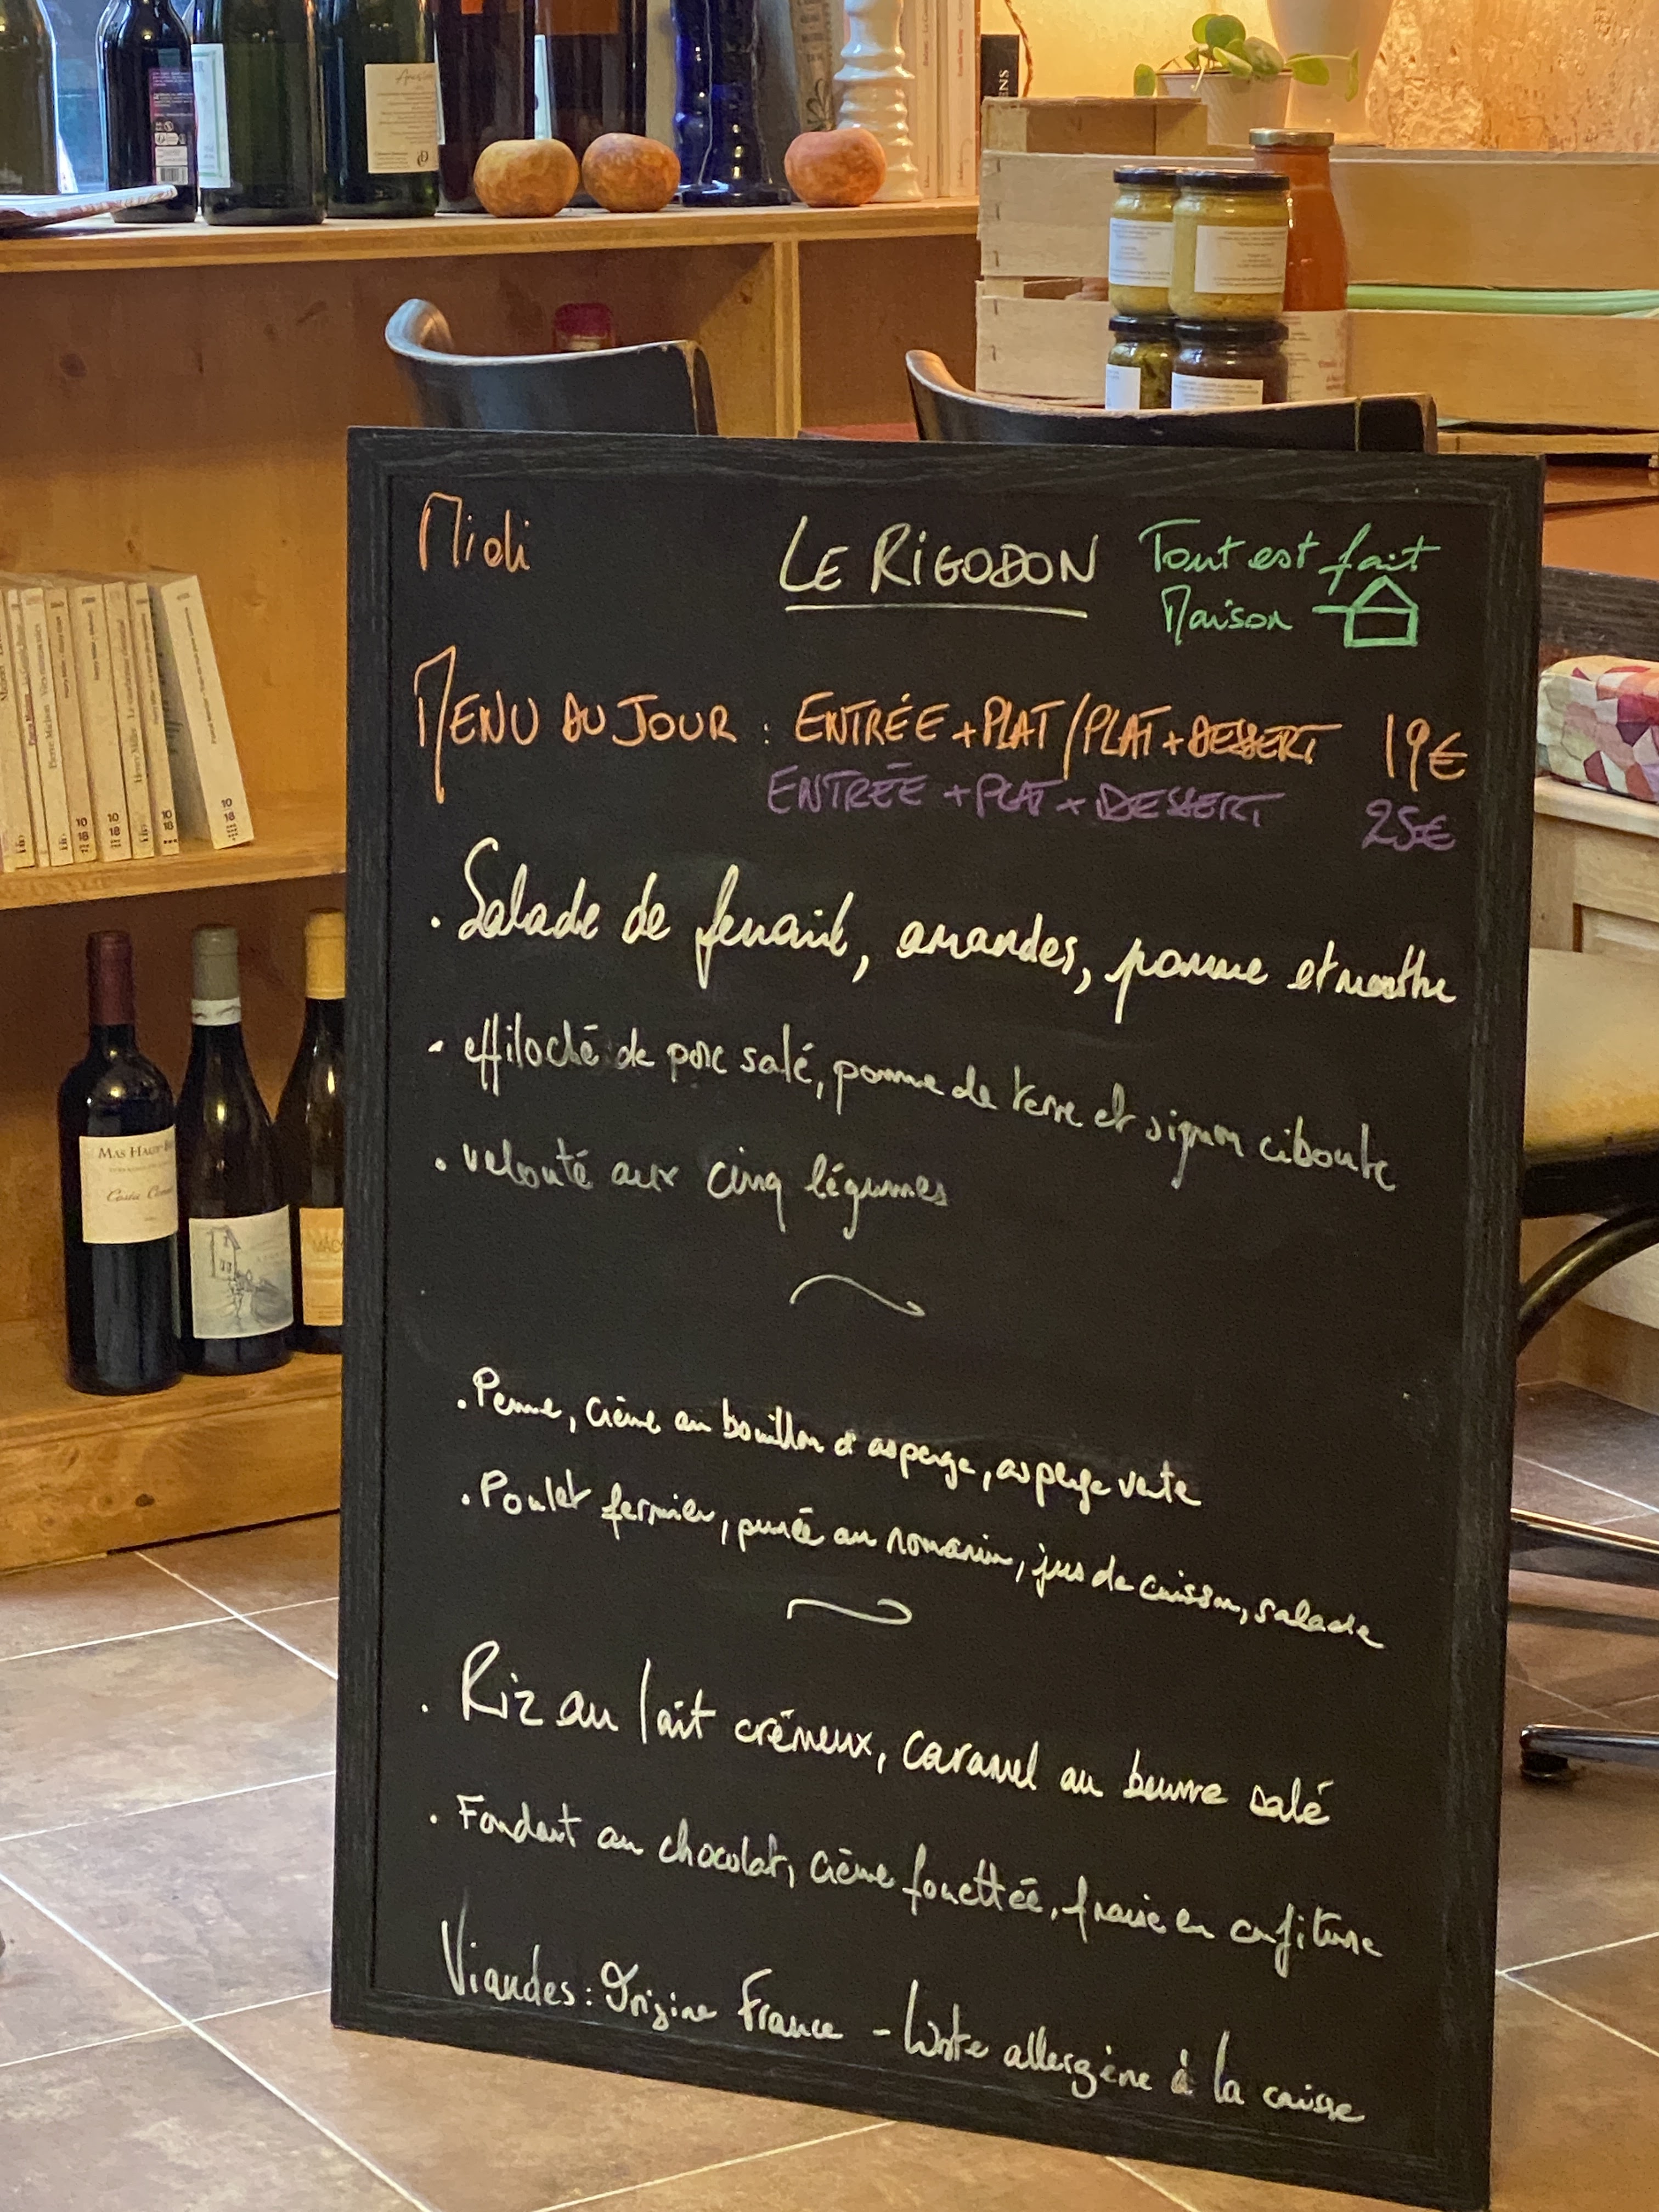 Midi
LE RIGODON
Tout est fait
Maison
MENU DU JOUR : ENTRÉE + PLAT / PLAT + DESSERT 19€
ENTRÉE + PLAT + DESSERT 25€
. Salade de fenouil, amandes, pomme et menthe
- effiloché de porc salé, pomme de terre et oignon ciboule
. velouté aux cinq légumes
. Penne, crème au bouillon d'asperge, asperge verte
. Poulet fermier, purée au romarin, jus de cuisson, salade
. Riz au lait crémeux, caramel au beurre salé
. Fondant au chocolat, crème fouettée, fraise en confiture
Viandes : Origine France - liste allergène à la caisse
MAS HAUT-B
Costa
MÂC
Pierre Michon
Henry Miller
10
18
10
18
10
18
10
18
ENS